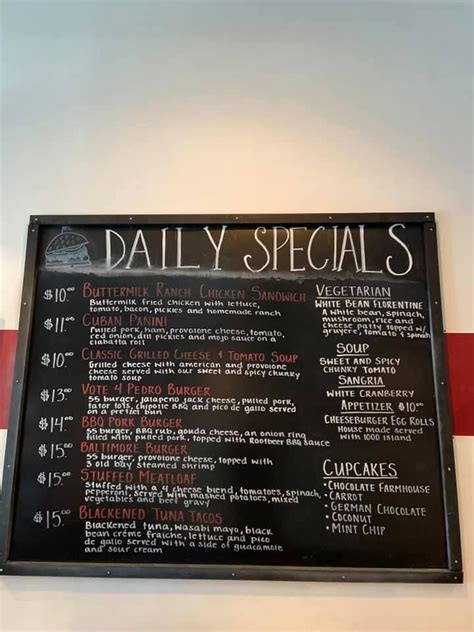 DAILY SPECIALS
$10.00 BUTTERMILK RANCH CHICKEN SANDWICH
Buttermilk fried chicken with lettuce,
tomato, bacon, pickles and homemade ranch
$11.00 CUBAN PANINI
Pulled pork, ham, provolone cheese, tomato,
red onion, dill pickles and mojo sauce on a
ciabatta roll
$10.00 CLASSIC GRILLED CHEESE & TOMATO SOUP
Grilled cheese with american and provolone
cheese served with our sweet and spicy chunky
tomato soup
$13.00 VOTE 4 PEDRO BURGER
SS burger, jalapeño jack cheese, pulled pork,
tator tots, chipotle BBQ and pico de gallo served
on a pretzel bun
$14.00 BBQ PORK BURGER
SS burger, BBQ rub, gouda cheese, an onion ring
filled with pulled pork, topped with Rootbeer BBQ sauce
$15.00 BALTIMORE BURGER
SS burger, provolone cheese, topped with
3 old bay steamed shrimp
$15.00 STUFFED MEATLOAF
Stuffed with a 4 cheese blend, tomatoes, spinach,
pepperoni, served with mashed potatoes, mixed
vegetables and beef gravy
$15.00 BLACKENED TUNA TACOS
Blackened tuna, wasabi mayo, black
bean créme fraiche, lettuce and pico
de gallo served with a side of guacamole
and sour cream
VEGETARIAN
WHITE BEAN FLORENTINE
A white bean, spinach,
mushroom, rice and
cheese patty topped w/
gruyere, tomato & spinach
SOUP
SWEET AND SPICY
CHUNKY TOMATO
SANGRIA
WHITE CRANBERRY
APPETIZER $10.00
CHEESEBURGER EGG ROLLS
HOUSE MADE SERVED
WITH 1000 ISLAND
CUPCAKES
• CHOCOLATE FARMHOUSE
• CARROT
• GERMAN CHOCOLATE
• COCONUT
• MINT CHIP